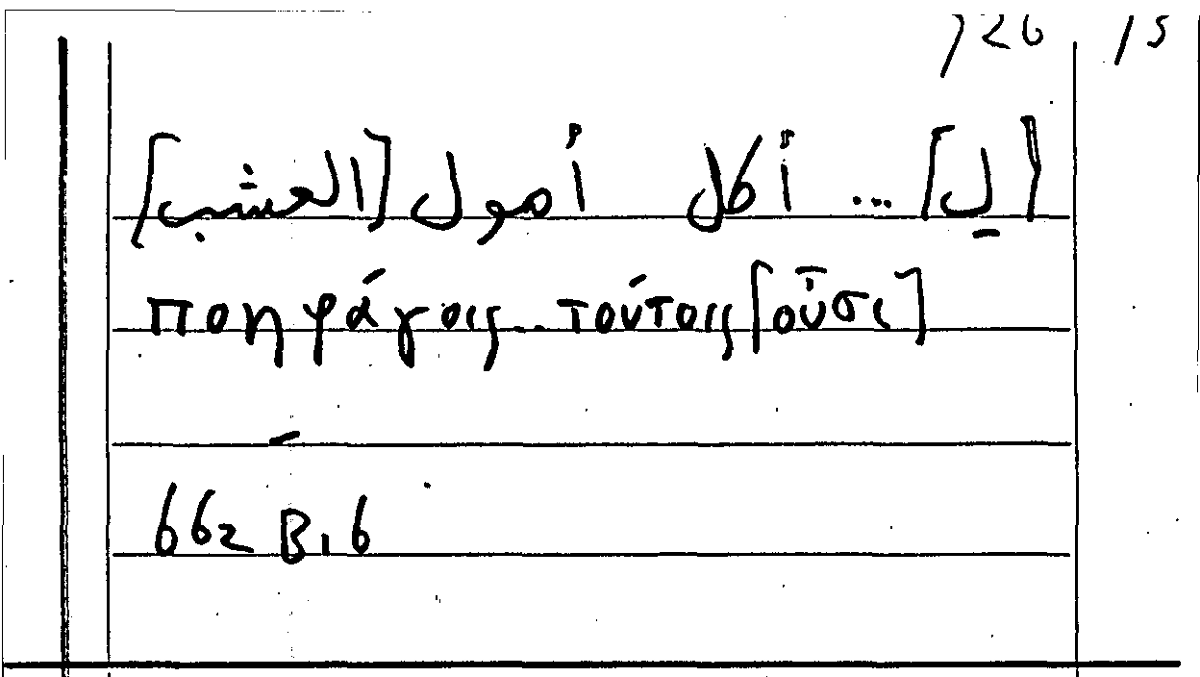 [لِ] ... أكل أصول [العشب]
ποηφάγοις... τούτοις [οὖσι]
662 B, 6